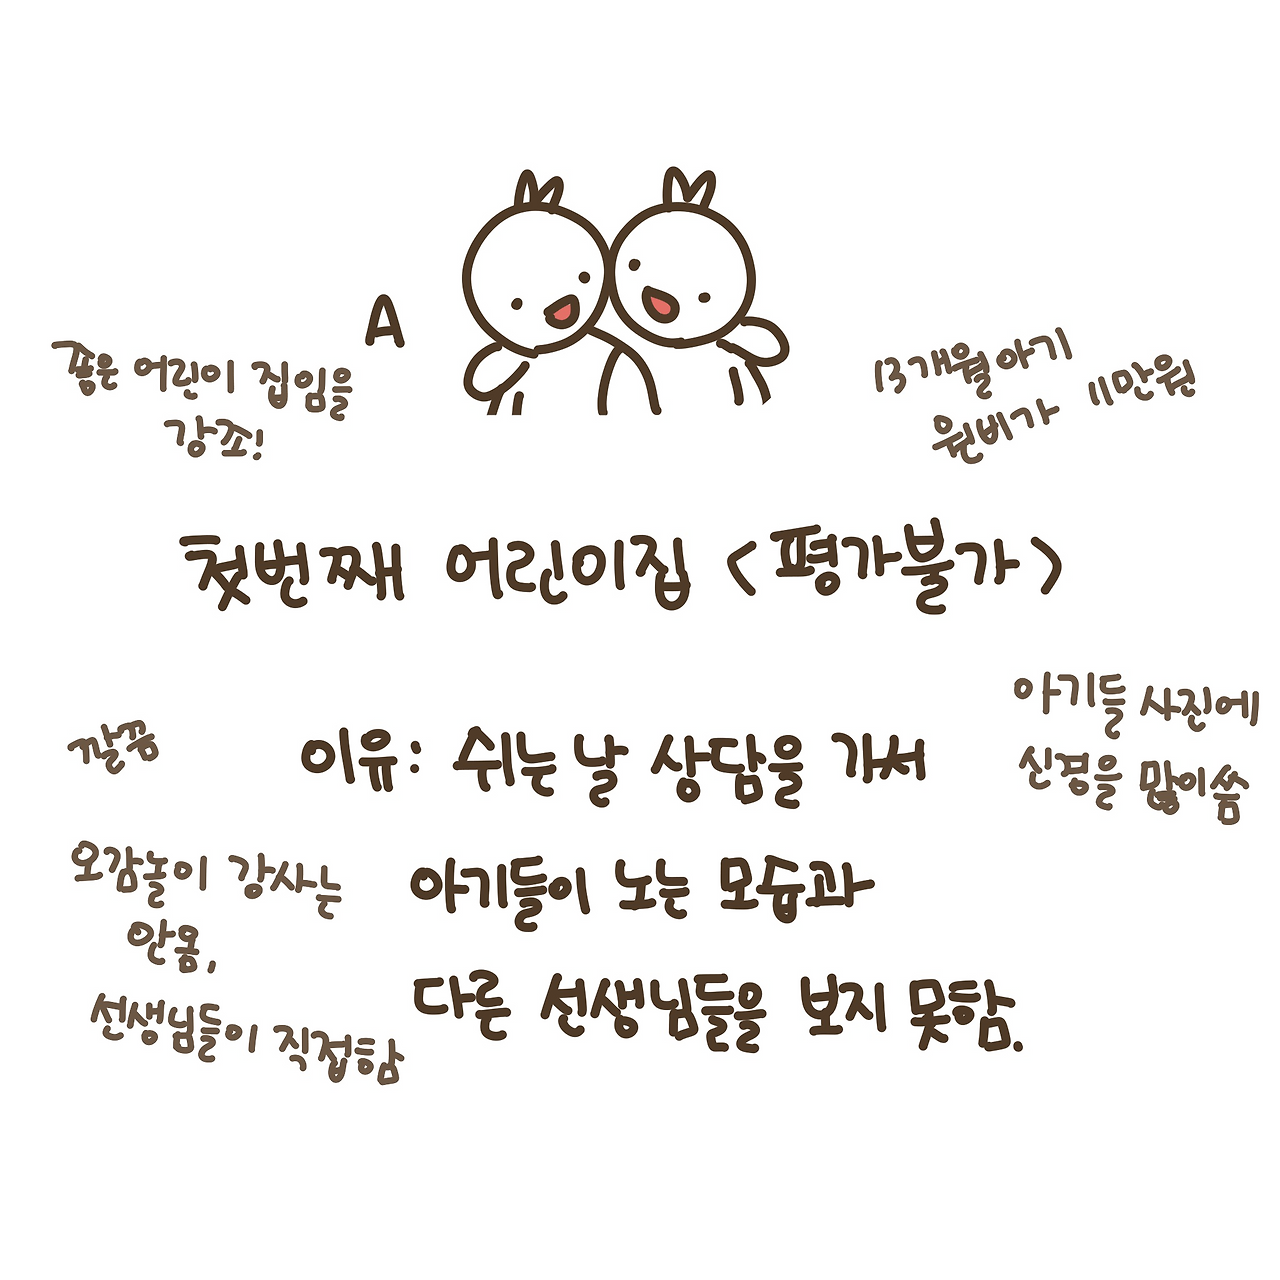 A
좋은 어린이 집임을
강조!
13개월아기
원비가 11만원
첫번째 어린이집 <평가불가>
깔끔
이유: 쉬는 날 상담을 가서
아기들 사진에
신경을 많이씀
오감놀이 강사는
안옴,
선생님들이 직접함
아기들이 노는 모습과
다른 선생님들을 보지 못함.